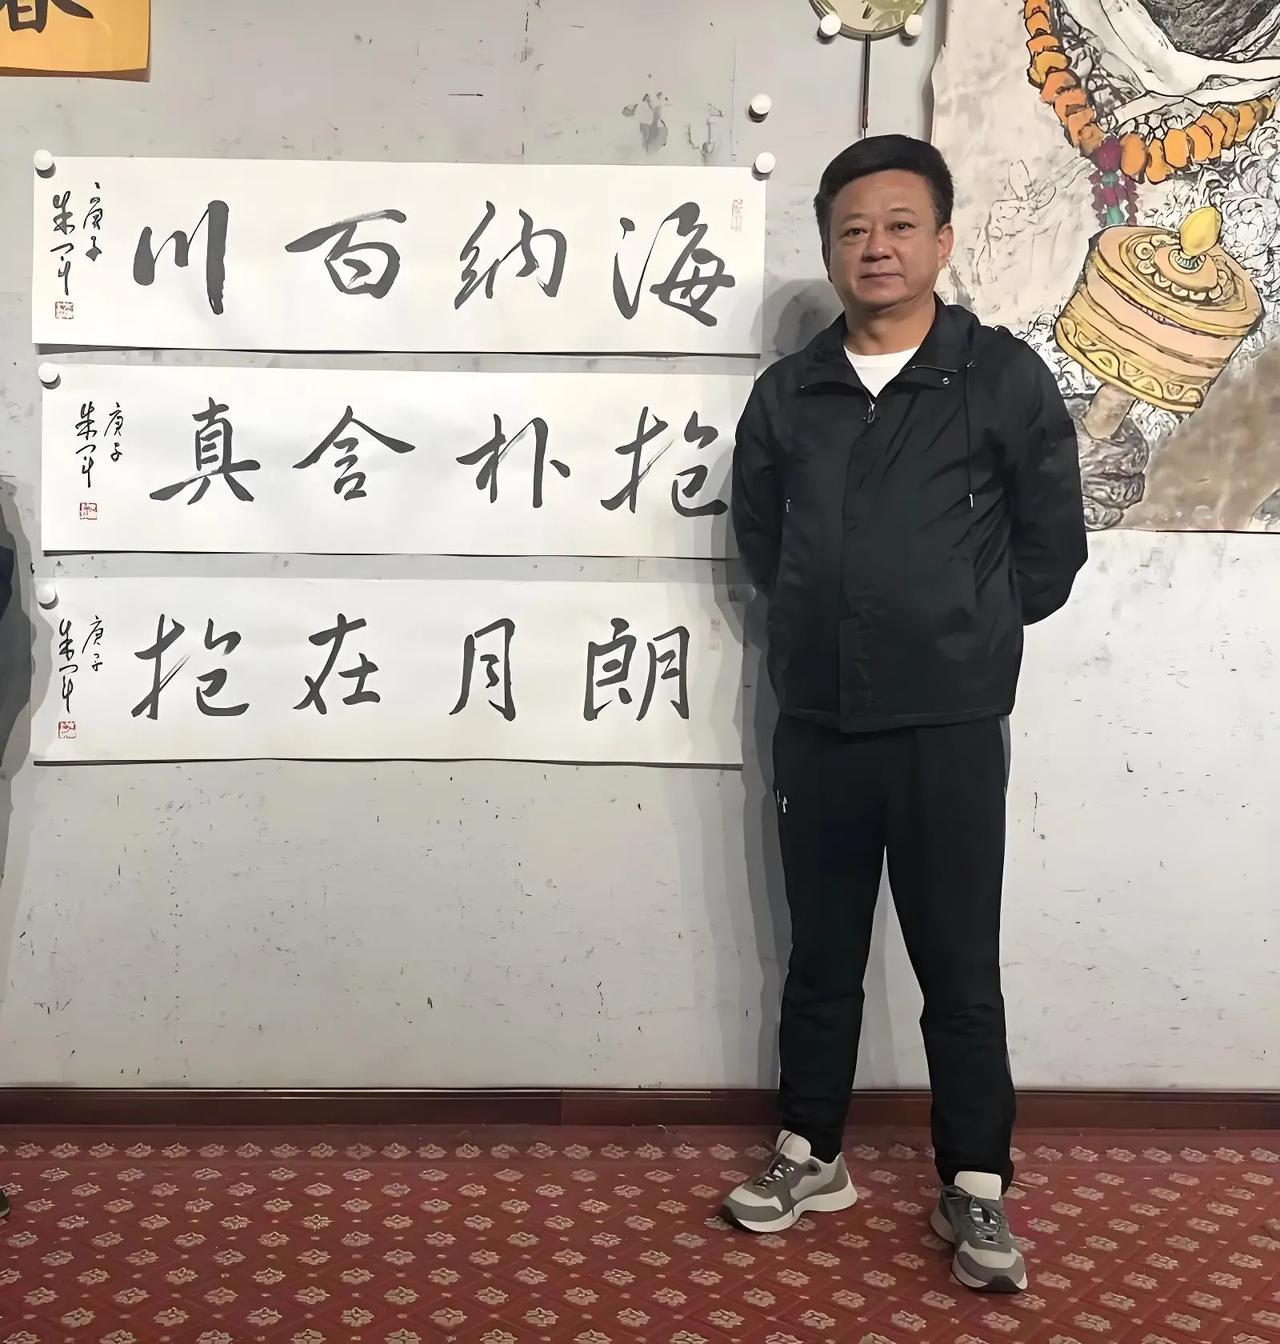 海纳百川
庚子
朱军
抱朴含真
庚子
朱军
朗月在抱
庚子
朱军